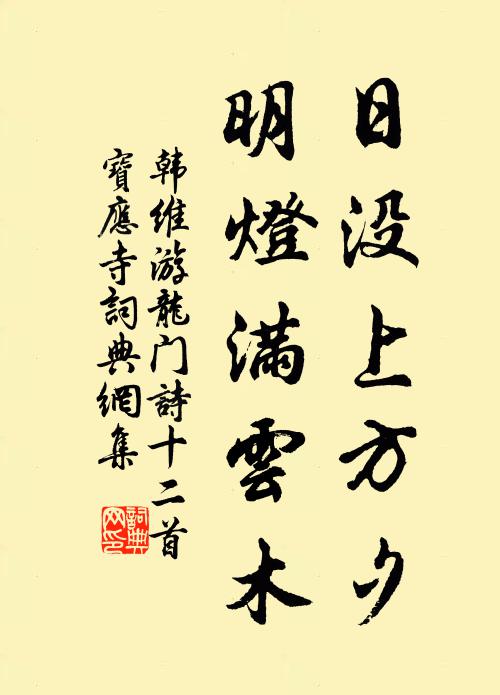 日没上方夕
明燈滿雲木
韩维游龍门詩十二首
寶應寺詞典網集
詞典
网印